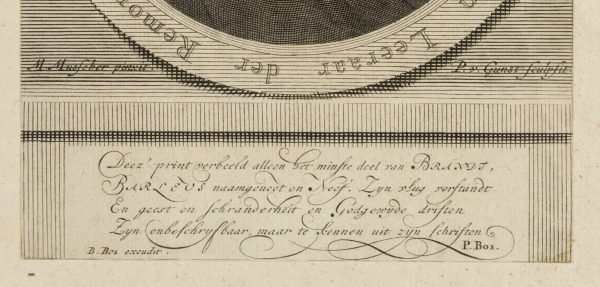 Leeraar der Remon
M. Musscher pinxit.
P. v. Gunst sculpsit
Deez' print verbeeld alleen het minste deel van BRANDT,
BARLEUS naamgenoot en Neef. Zyn vlug verstandt
En geest en schranderheit en Godgewyde driften
Zyn onbeschryfbaar, maar te kennen uit zyn schriften
P. Bos.
B. Bos excudit.